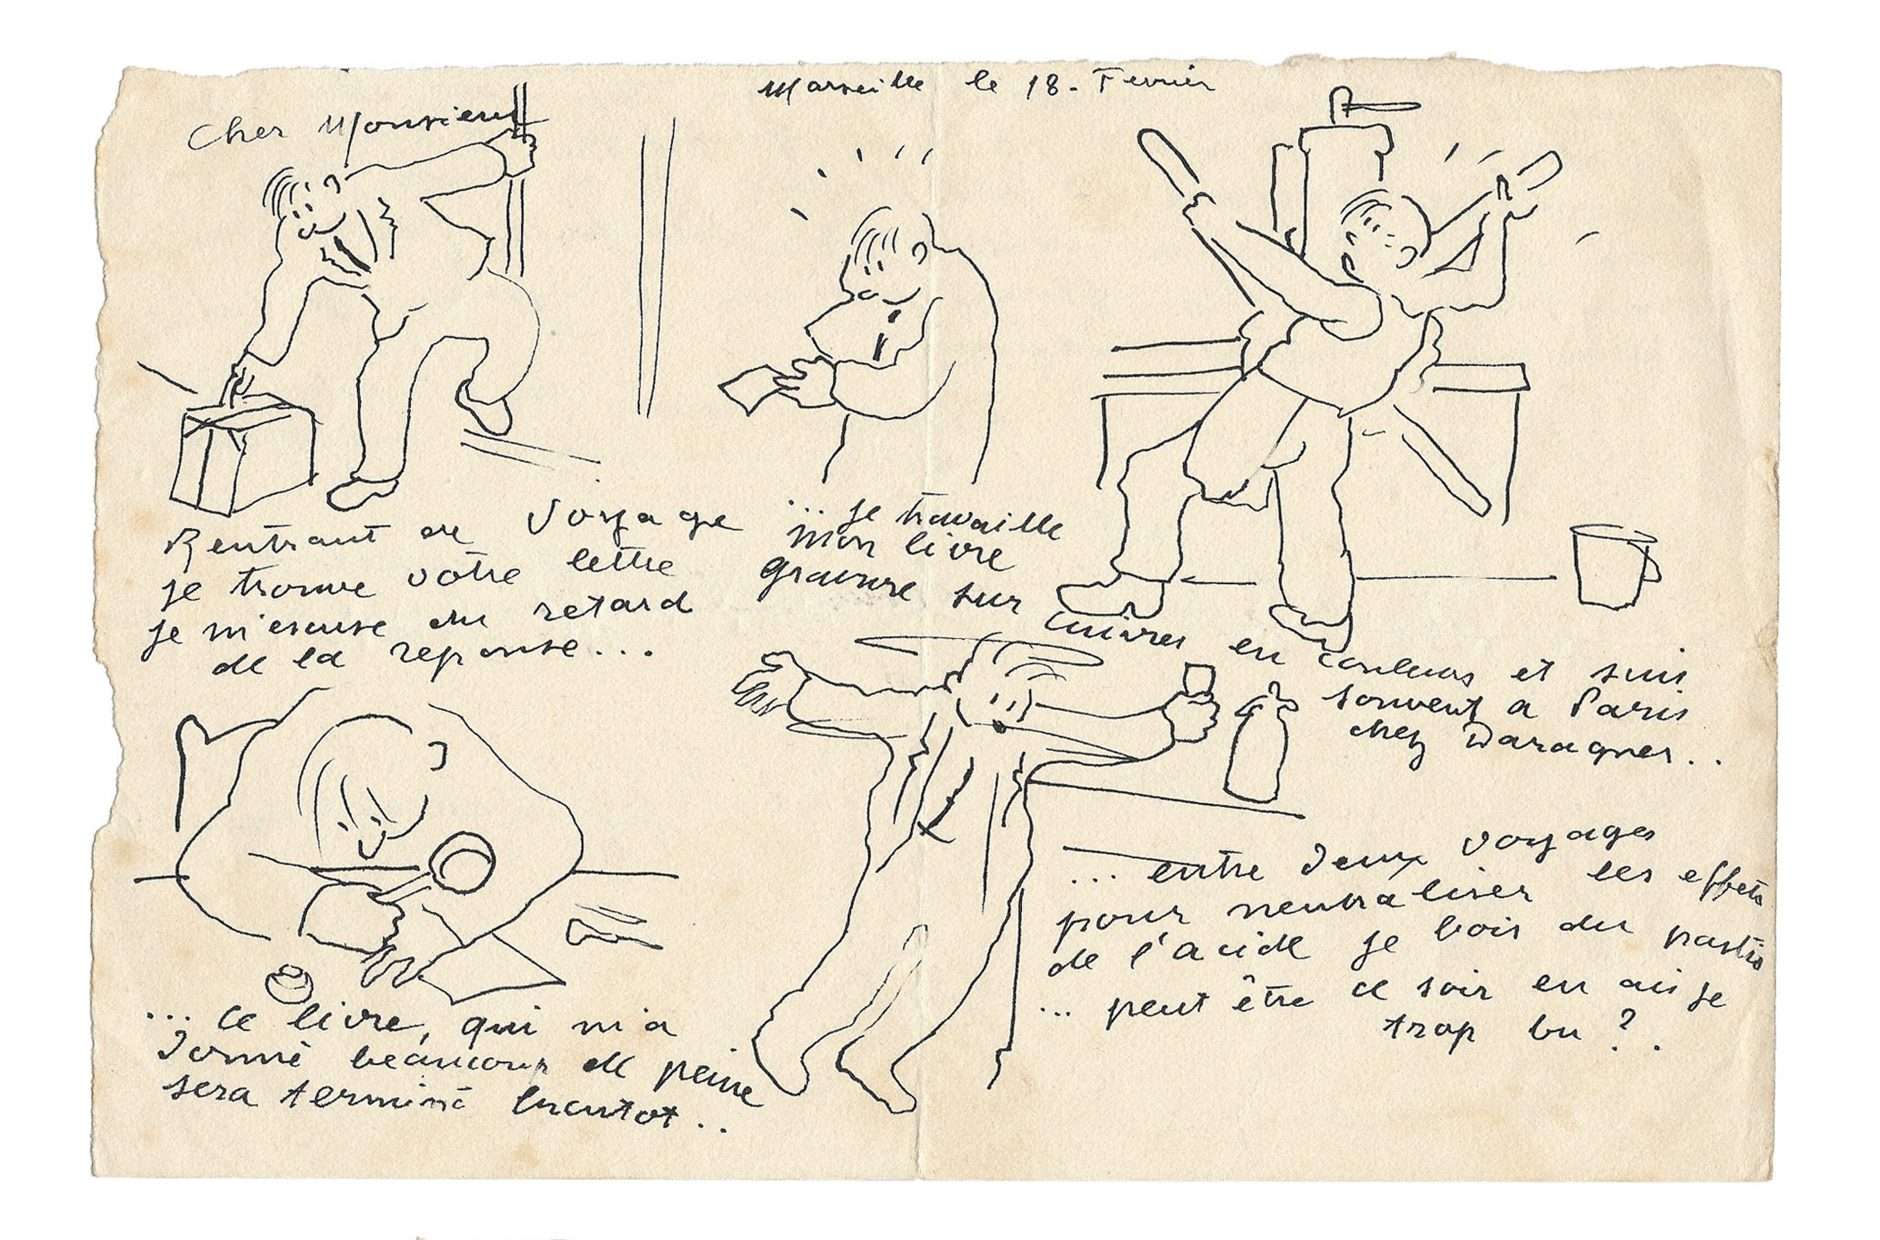 Marseille le 18. Fevrier
Cher Monsieur
Rentrant de voyage
je trouve votre lettre
je m'escuse du retard
de la reponse...
... je travaille
mon livre
gravure sur cuivres en couleurs et suis
souvent a Paris
chez Daragnes..
... ce livre, qui m'a
donné beaucoup de peine
sera terminé bientot..
... entre deux voyages
pour neutraliser les effets
de l'acide je bois du pastis
... peut être ce soir en ai je
trop bu ?.